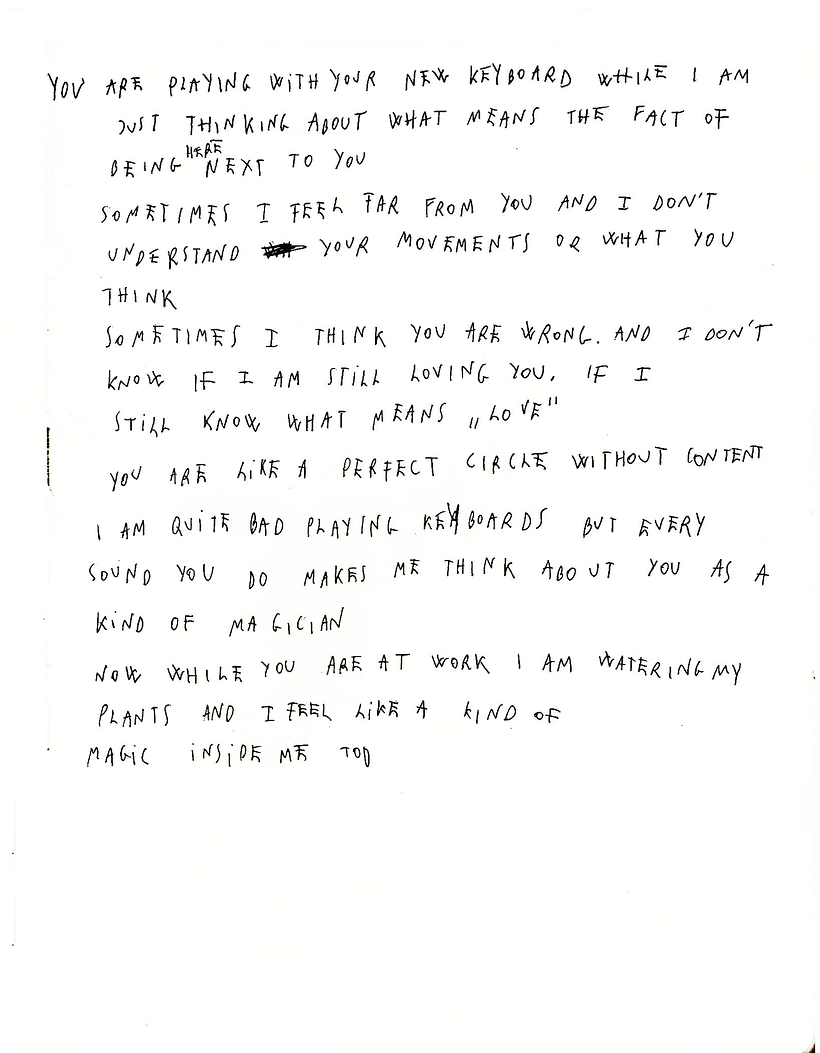 YOU ARE PLAYING WITH YOUR NEW KEYBOARD WHILE I AM
JUST THINKING ABOUT WHAT MEANS THE FACT OF
BEING HERE NEXT TO YOU
SOMETIMES I FEEL FAR FROM YOU AND I DON'T
UNDERSTAND YOUR MOVEMENTS OR WHAT YOU
THINK
SOMETIMES I THINK YOU ARE WRONG. AND I DON'T
KNOW IF I AM STILL LOVING YOU. IF I
STILL KNOW WHAT MEANS „LOVE"
YOU ARE LIKE A PERFECT CIRCLE WITHOUT CONTENT
I AM QUITE BAD PLAYING KEYBOARDS BUT EVERY
SOUND YOU DO MAKES ME THINK ABOUT YOU AS A
KIND OF MAGICIAN
NOW WHILE YOU ARE AT WORK I AM WATERING MY
PLANTS AND I FEEL LIKE A KIND OF
MAGIC INSIDE ME TOO